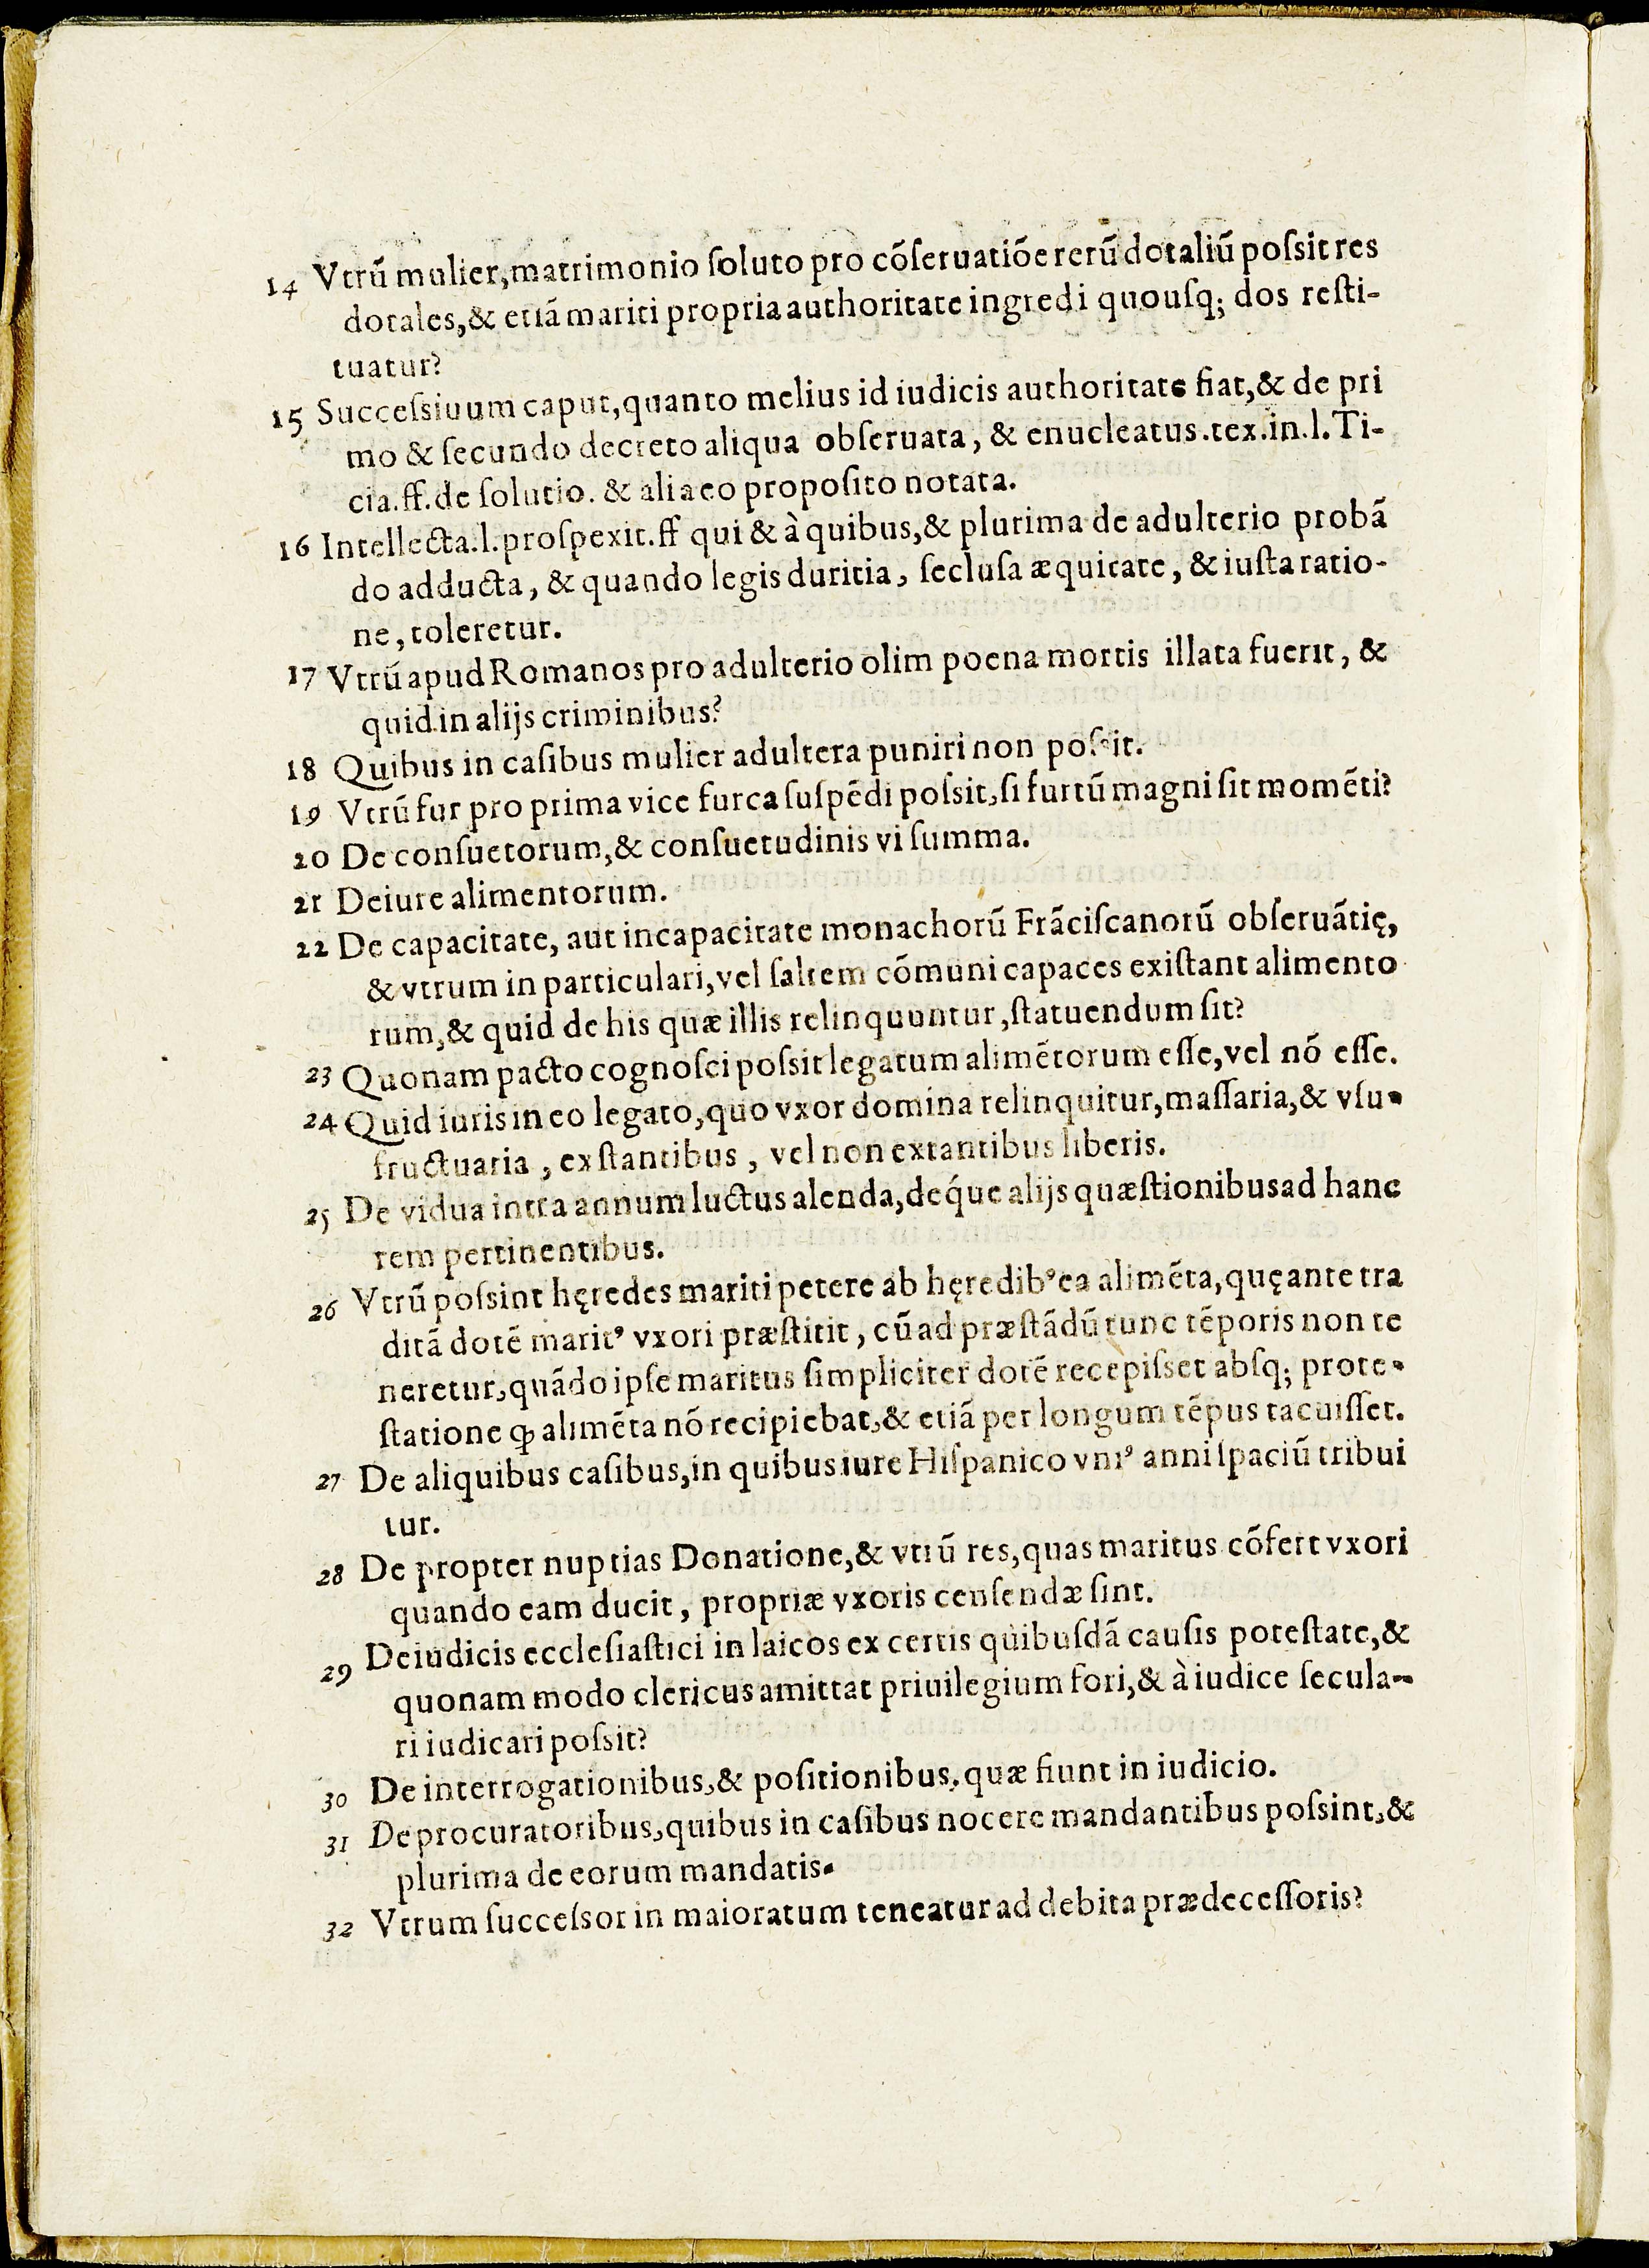 14 Vtrũ mulier, matrimonio ſoluto pro cõſeruatiõe rerũ dotaliũ poſsit res
dotales, & etiã mariti propria authoritate ingredi quouſq; dos reſti-
tuatur?
15 Succeſsiuum caput, quanto melius id iudicis authoritate fiat, & de pri
mo & ſecundo decreto aliqua obſeruata, & enucleatus .tex.in.l. Ti-
cia.ff.de ſolutio. & alia eo propoſito notata.
16 Intellecta.l.proſpexit.ff qui & à quibus, & plurima de adulterio probã
do adducta, & quando legis duritia, ſecluſa æquitate, & iuſta ratio-
ne, toleretur.
17 Vtrũ apud Romanos pro adulterio olim poena mortis illata fuerit, &
quid in alijs criminibus?
18 Quibus in caſibus mulier adultera puniri non poſsit.
19 Vtrũ fur pro prima vice furca ſuſpẽdi poſsit, ſi furtũ magni ſit momẽti?
20 De conſuetorum, & conſuetudinis vi ſumma.
21 De iure alimentorum.
22 De capacitate, aut incapacitate monachorũ Frãciſcanorũ obſeruãtię,
& vtrum in particulari, vel ſaltem cõmuni capaces exiſtant alimento
rum, & quid de his quæ illis relinquuntur, ſtatuendum ſit?
23 Quonam pacto cognoſci poſsit legatum alimẽtorum eſſe, vel nõ eſſe.
24 Quid iuris in eo legato, quo vxor domina relinquitur, maſſaria, & vſu-
fructuaria, exſtantibus, vel non extantibus liberis.
25 De vidua intra annum luctus alenda, deq́ue alijs quæſtionibus ad hanc
rem pertinentibus.
26 Vtrũ poſsint hęredes mariti petere ab hęredibꝰ ea alimẽta, quę ante tra
ditã dotẽ maritꝰ vxori præſtitit, cũ ad præſtãdũ tunc tẽporis non te
neretur, quãdo ipſe maritus ſimpliciter dotẽ recepiſset abſq; prote-
ſtatione ꝙ alimẽta nõ recipiebat, & etiã per longum tẽpus tacuiſſet.
27 De aliquibus caſibus, in quibus iure Hiſpanico vniꝰ anni ſpaciũ tribui
tur.
28 De propter nuptias Donatione, & vtrũ res, quas maritus cõfert vxori
quando eam ducit, propriæ vxoris cenſendæ ſint.
29 De iudicis eccleſiaſtici in laicos ex certis quibuſdã cauſis poteſtate, &
quonam modo clericus amittat priuilegium fori, & à iudice ſecula-
ri iudicari poſsit?
30 De interrogationibus, & poſitionibus, quæ fiunt in iudicio.
31 De procuratoribus, quibus in caſibus nocere mandantibus poſsint, &
plurima de eorum mandatis.
32 Vtrum ſucceſsor in maioratum teneatur ad debita prædeceſſoris?